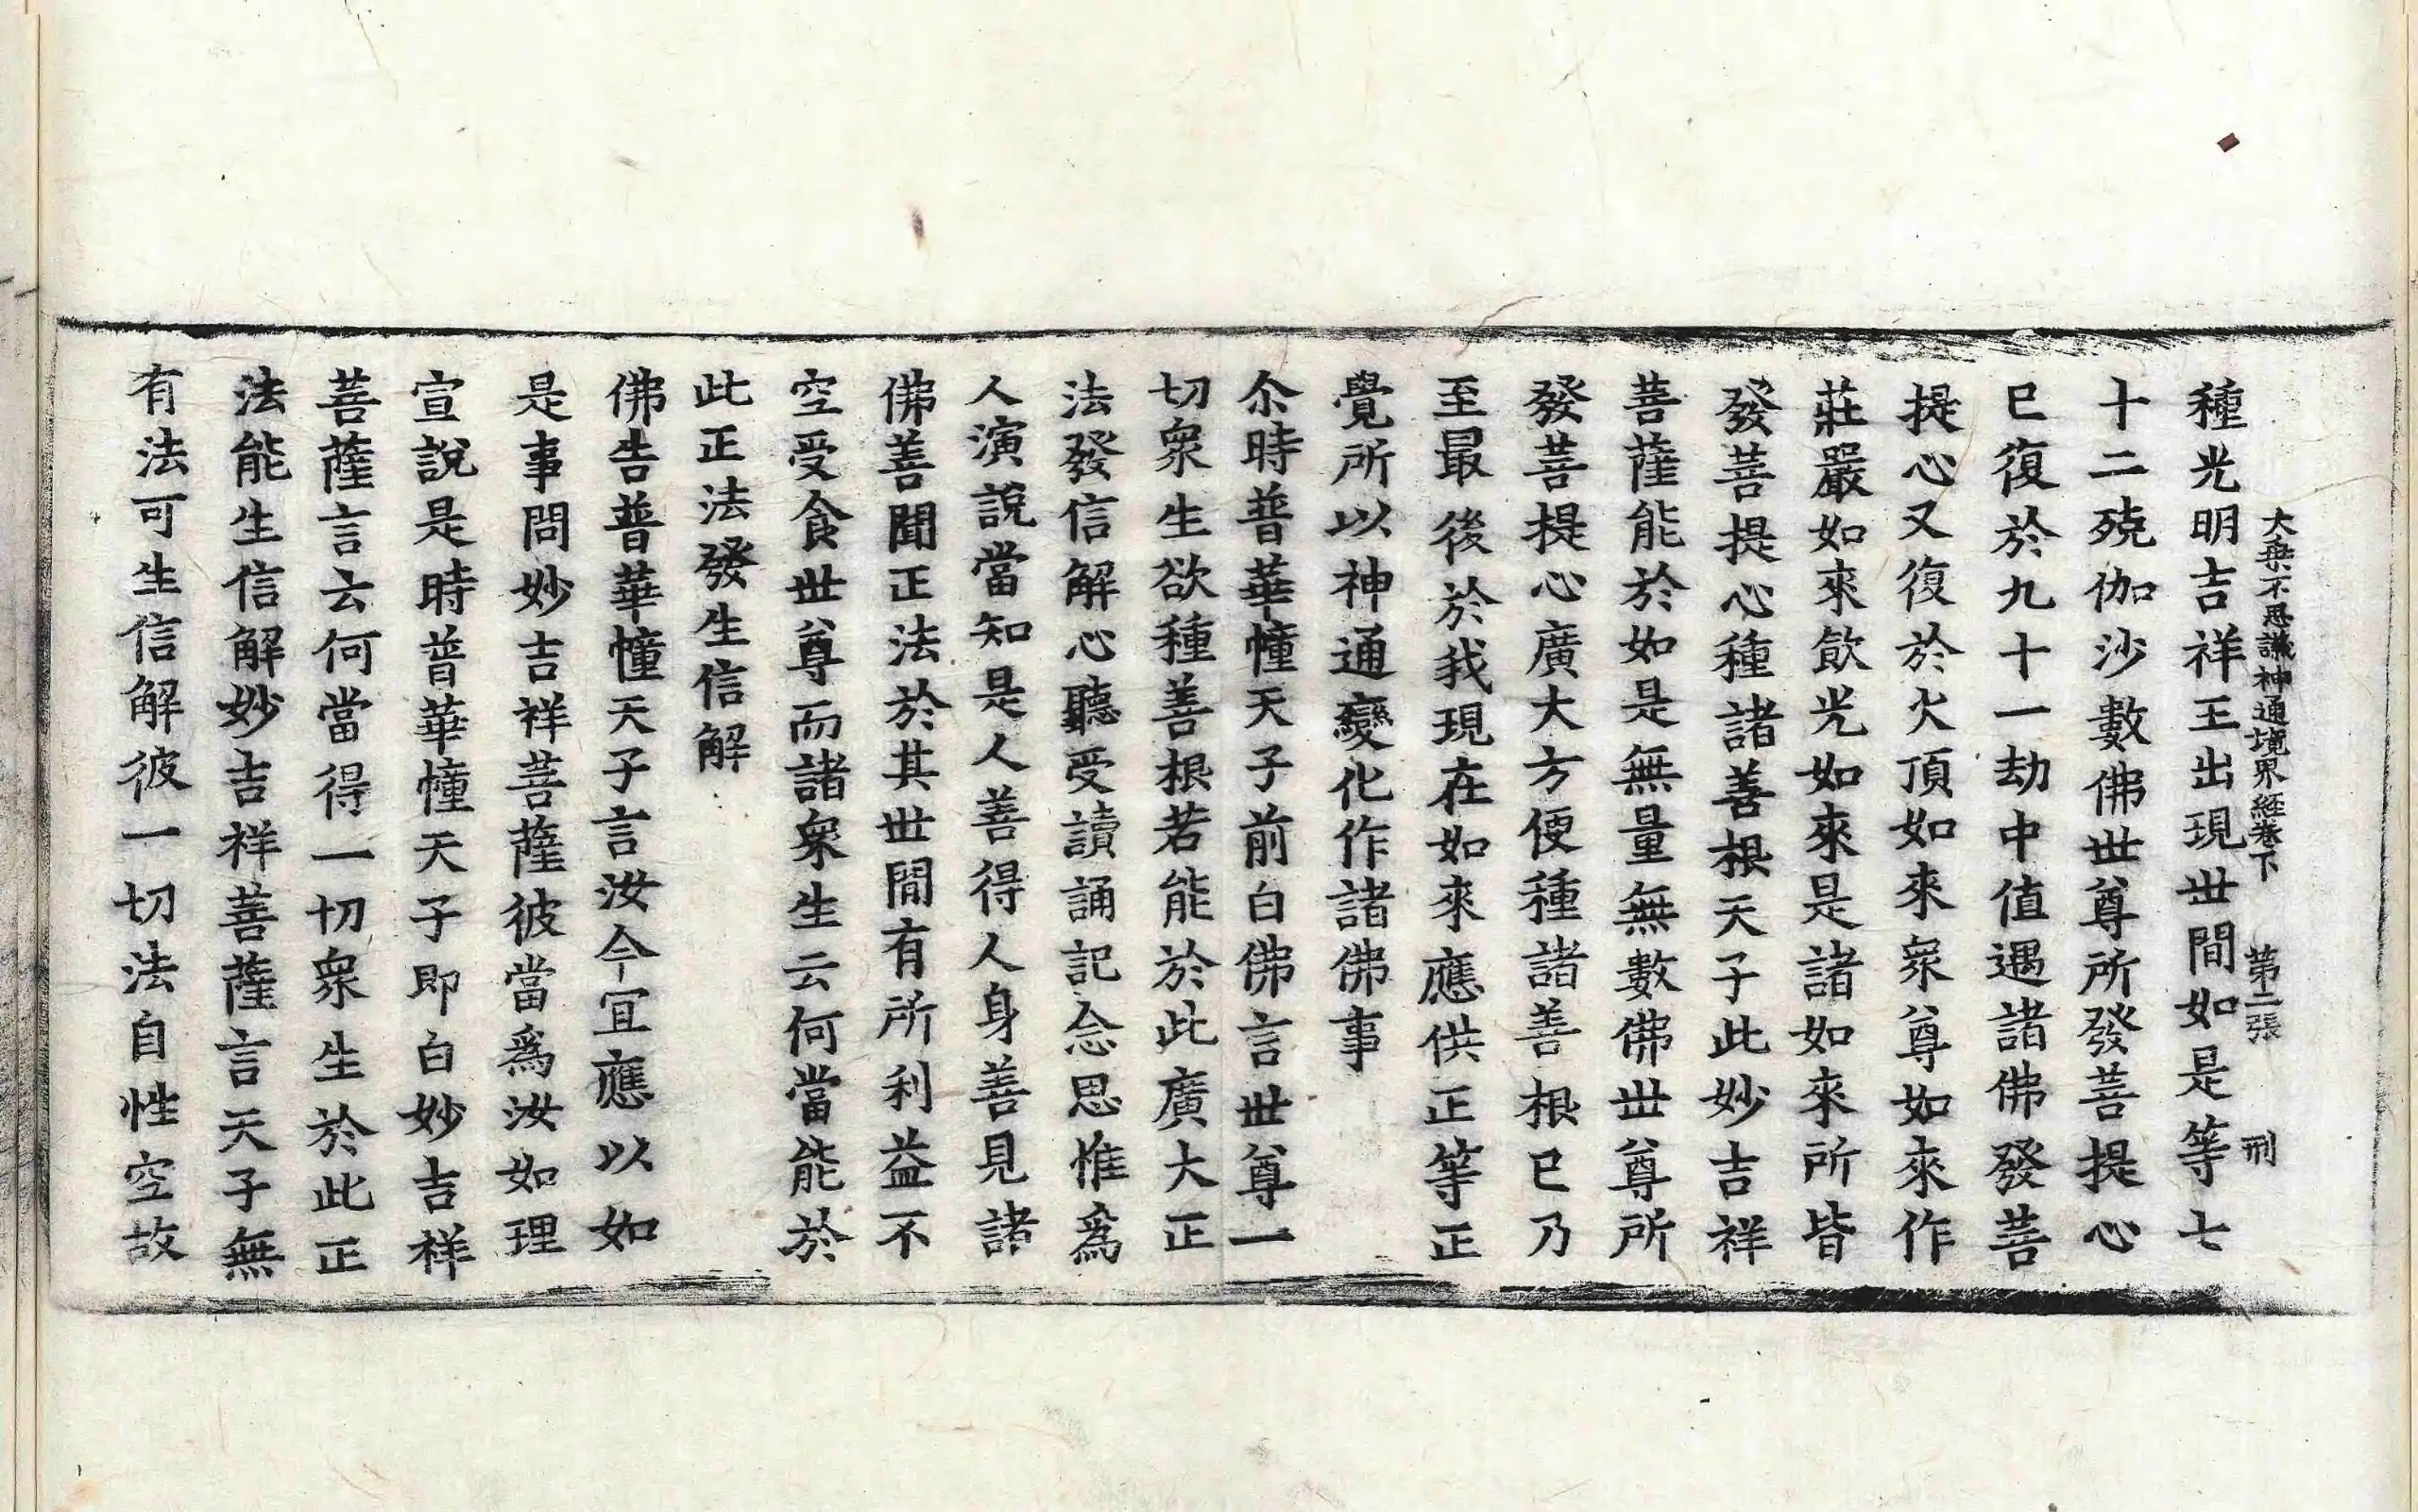 大乗不思議神通境界經卷下 第二張 刑
種光明吉祥王出現世間如是等七
十二殑伽沙數佛世尊所發菩提心
已復於九十一劫中值遇諸佛發菩
提心又復於火頂如來衆尊如來作
莊嚴如來飲光如來是諸如來所皆
發菩提心種諸善根天子此妙吉祥
菩薩能於如是無量無數佛世尊所
發菩提心廣大方便種諸善根已乃
至最後於我現在如來應供正等正
覺所以神通變化作諸佛事
尒時普華幢天子前白佛言世尊一
切衆生欲種善根若能於此廣大正
法發信解心聽受讀誦記念思惟爲
人演說當知是人善得人身善見諸
佛善聞正法於其世間有所利益不
空受食世尊而諸衆生云何當能於
此正法發生信解
佛告普華幢天子言汝今宜應以如
是事問妙吉祥菩薩彼當爲汝如理
宣說是時普華幢天子即白妙吉祥
菩薩言云何當得一切衆生於此正
法能生信解妙吉祥菩薩言天子無
有法可生信解彼一切法自性空故